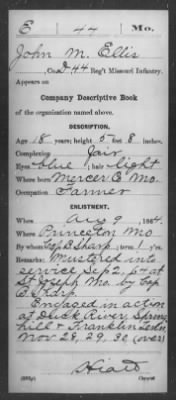 E 44 Mo.
John M. Ellis
, Co. D 44 Reg't Missouri Infantry.
Appears on
Company Descriptive Book
of the organization named above.
DESCRIPTION.
Age 18 years; height 5 feet 8 inches.
Complexion Fair
Eyes blue; hair light
Where born Mercer C Mo.
Occupation Farmer
ENLISTMENT.
When Aug 9, 1864.
Where Princeton Mo
By whom Cap B. Sharp; term 1 yrs.
Remarks: Mustered into
service Sep 2, 64 at
St Joseph Mo. by Cap
B. Sharp.
Engaged in action
at Duck River, Spring
hill & Franklin Tenn
Nov. 28, 29, 30 (over)
Hiatt
Copyist.